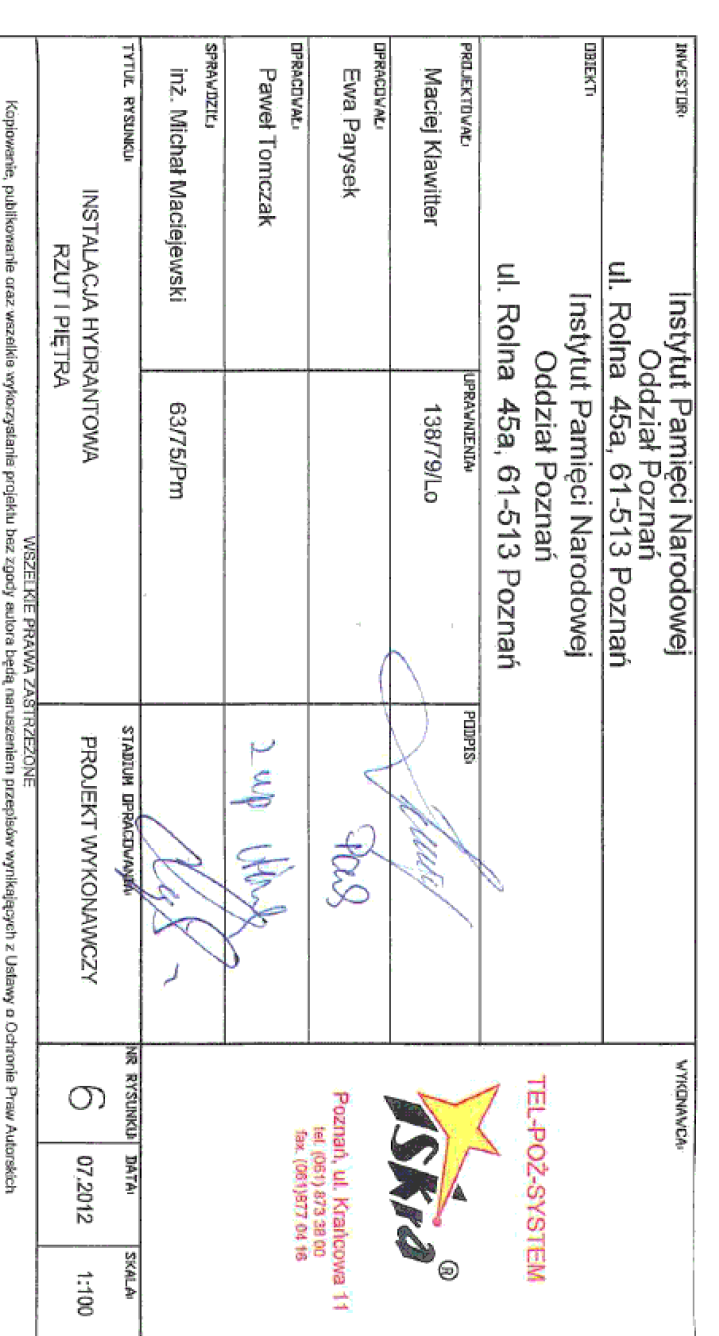 INWESTOR:
Instytut Pamięci Narodowej
Oddział Poznań
ul. Rolna 45a, 61-513 Poznań
OBIEKT:
Instytut Pamięci Narodowej
Oddział Poznań
ul. Rolna 45a, 61-513 Poznań
WYKONAWCA:
TEL-POŻ-SYSTEM
ISKRA ®
Poznań, ul. Krańcowa 11
tel. (061) 873 38 00
fax. (061)877 04 16
PROJEKTOWAŁ:
Maciej Klawitter
UPRAWNIENIA:
138/79/Lo
PODPIS:
OPRACOWAŁ:
Ewa Parysek
OPRACOWAŁ:
Paweł Tomczak
SPRAWDZIŁ:
inż. Michał Maciejewski
63/75/Pm
TYTUŁ RYSUNKU:
INSTALACJA HYDRANTOWA
RZUT I PIĘTRA
STADIUM OPRACOWANIA:
PROJEKT WYKONAWCZY
NR RYSUNKU:
6
DATA:
07.2012
SKALA:
1:100
WSZELKIE PRAWA ZASTRZEŻONE
Kopiowanie, publikowanie oraz wszelkie wykorzystanie projektu bez zgody autora będą naruszeniem przepisów wynikających z Ustawy o Ochronie Praw Autorskich